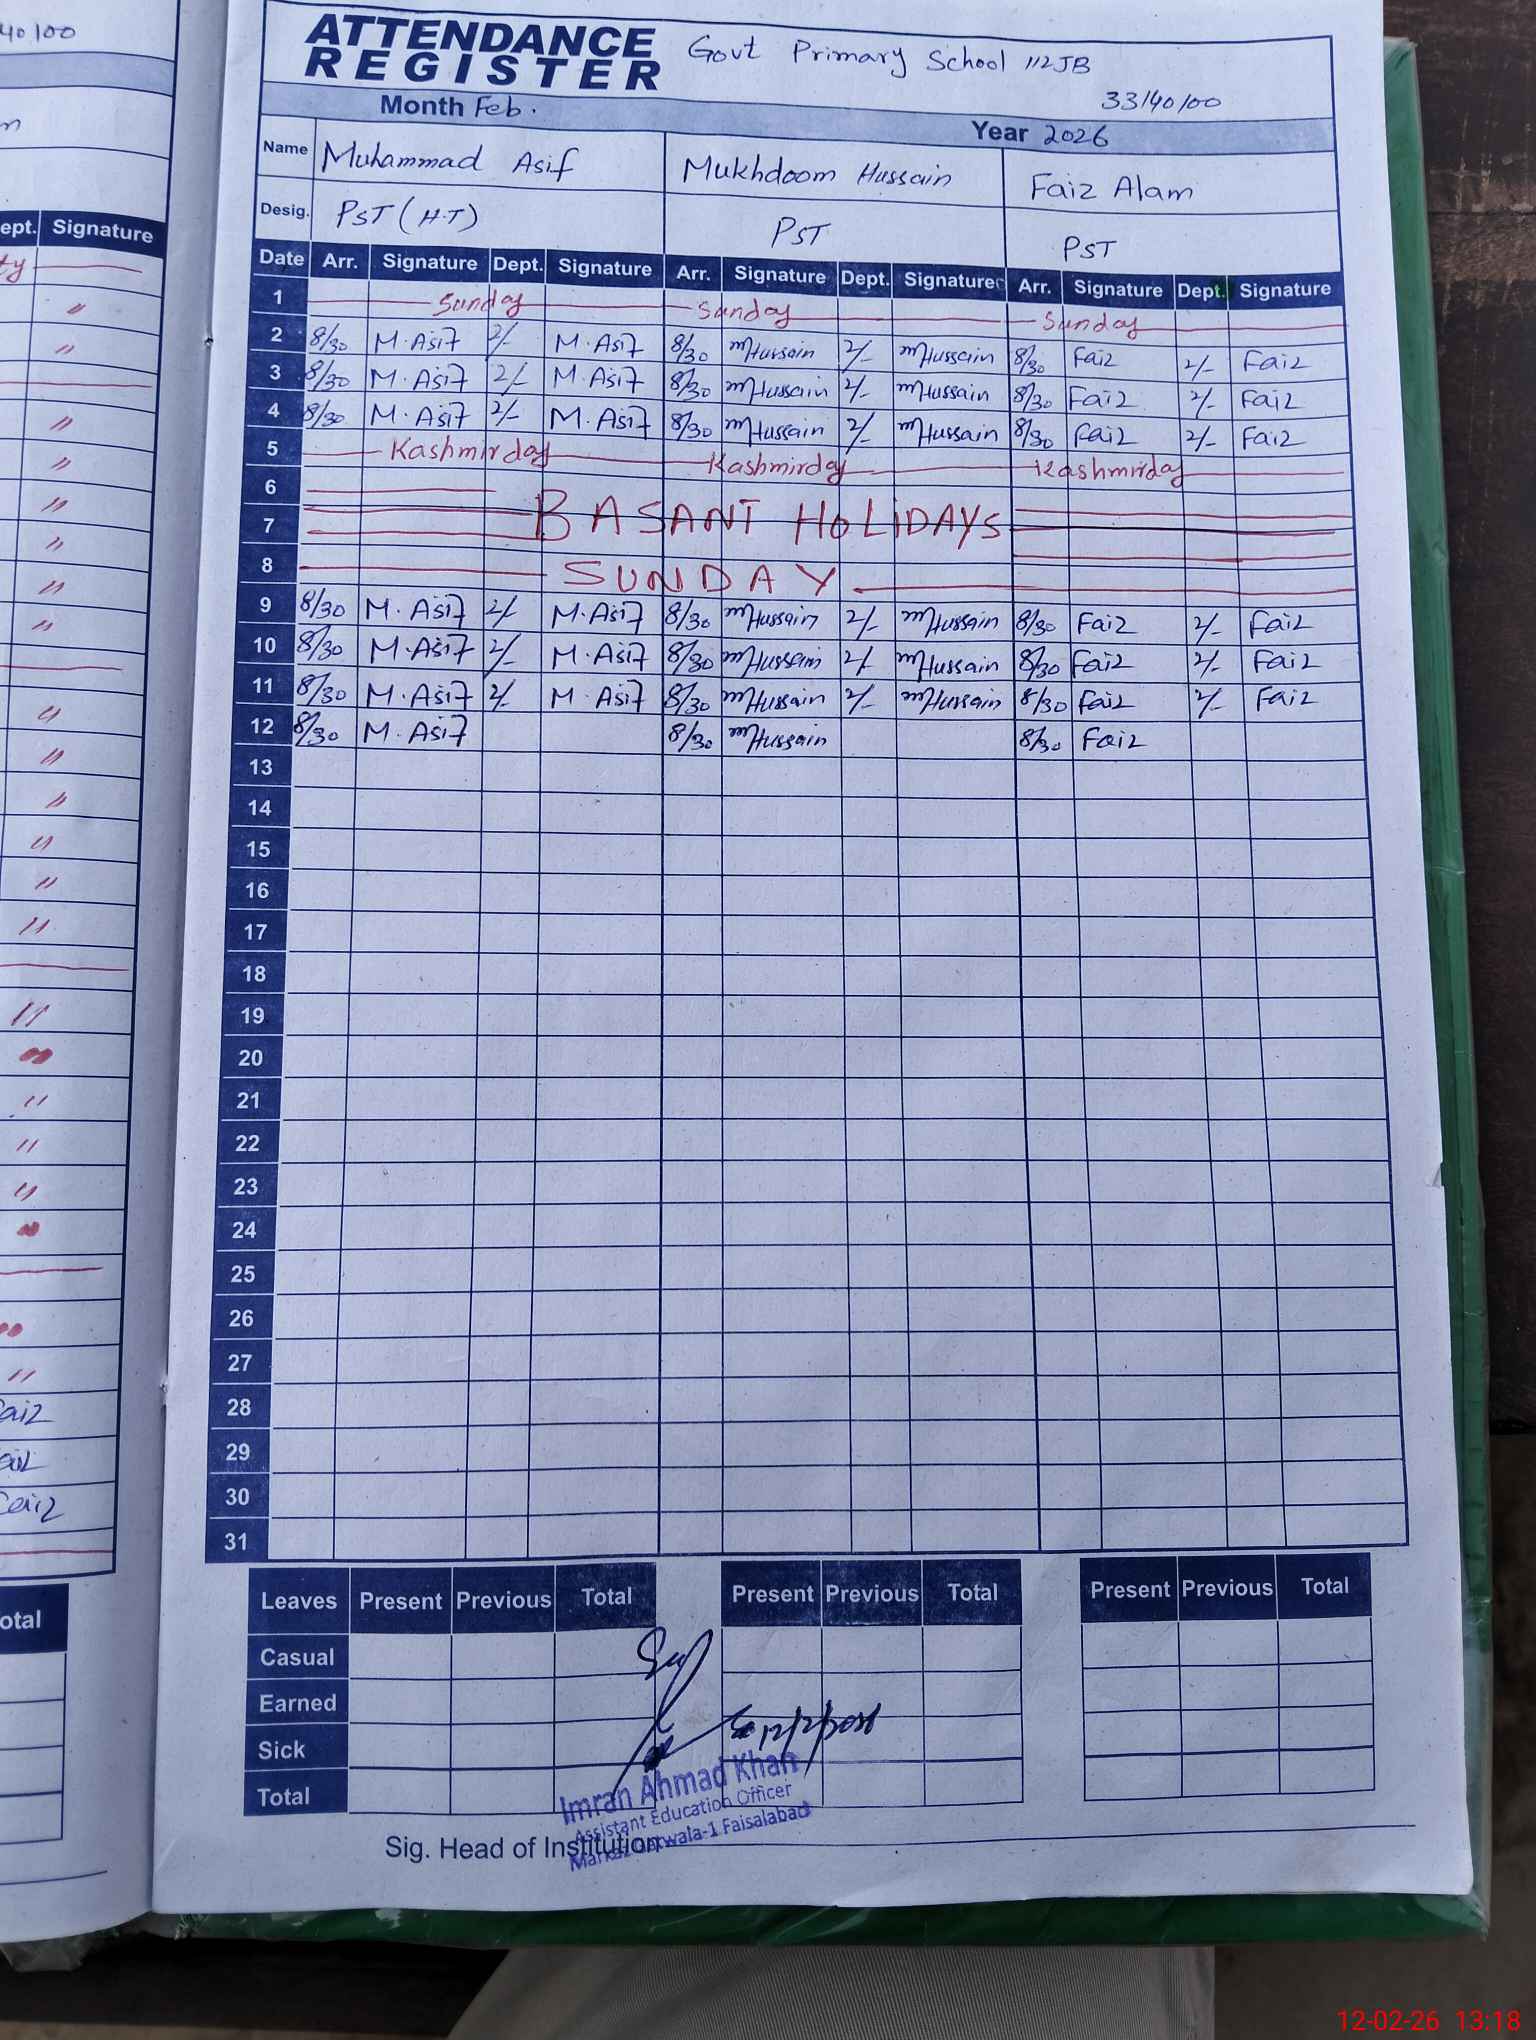 40100
ATTENDANCE
REGISTER
Govt Primary School 112JB
33140100
Month Feb.
Year 2026
Name Muhammad Asif Mukhdoom Hussain Faiz Alam
Desig. PST (H.T) PST PST
ept. Signature
Date Arr. Signature Dept. Signature Arr. Signature Dept. Signature Arr. Signature Dept. Signature
1 Sunday Sunday Sunday
2 8/30 M.Asif 2/- M.Asif 8/30 mHussain 2/- mHussain 8/30 Faiz 2/- Faiz
3 8/30 M.Asif 2/- M.Asif 8/30 mHussain 2/- mHussain 8/30 Faiz 2/- Faiz
4 8/30 M.Asif 2/- M.Asif 8/30 mHussain 2/- mHussain 8/30 Faiz 2/- Faiz
5 Kashmirday Kashmirday Kashmirday
6
7 BASANT HOLIDAYS
8 SUNDAY
9 8/30 M.Asif 2/- M.Asif 8/30 mHussain 2/- mHussain 8/30 Faiz 2/- Faiz
10 8/30 M.Asif 2/- M.Asif 8/30 mHussain 2/- mHussain 8/30 Faiz 2/- Faiz
11 8/30 M.Asif 2/- M.Asif 8/30 mHussain 2/- mHussain 8/30 Faiz 2/- Faiz
12 8/30 M.Asif 8/30 mHussain 8/30 Faiz
13
14
15
16
17
18
19
20
21
22
23
24
25
26
27
28
29
30
31
Faiz
Faiz
Faiz
otal
Leaves Present Previous Total Present Previous Total Present Previous Total
Casual
Earned
Sick
Total
12/2/2026
Imran Ahmad Khan
Assistant Education Officer
Markaz wala-1 Faisalabad
Sig. Head of Institution
12-02-26 13:18